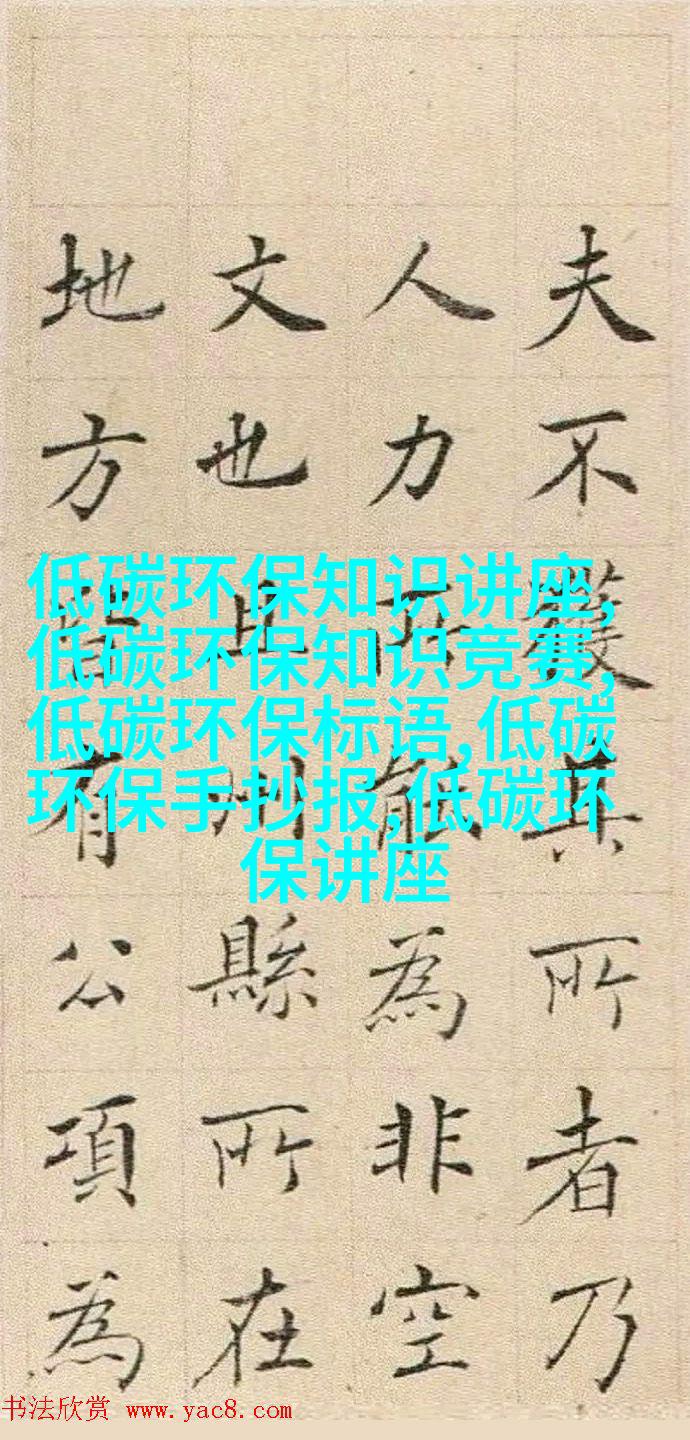 夫不其所者乃
人力能為非空
文也且州縣所在
地方皆有公項為
低碳环保知识讲座,
低碳环保知识竞赛,
低碳环保标语,低碳
环保手抄报,低碳环
保讲座
书法欣赏 www.yac8.com